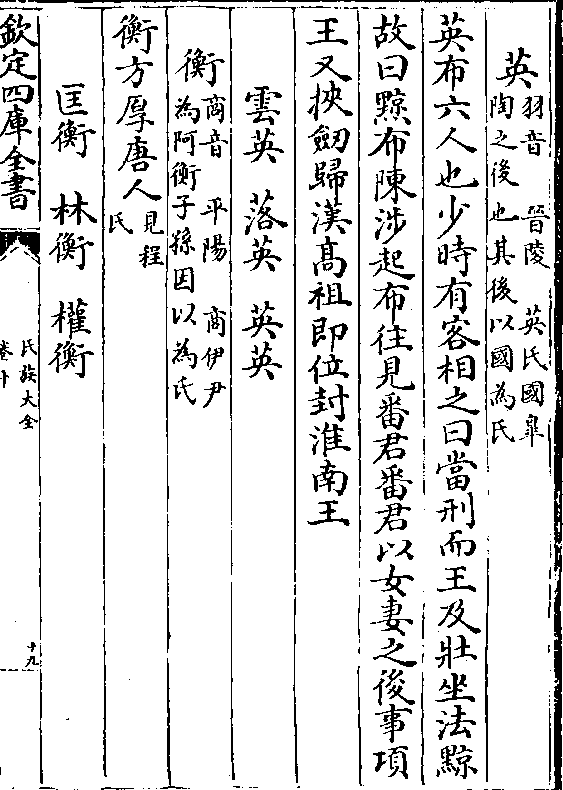 英羽音　晉陵　英氏國臯
陶之後也其後以國為氏
英布六人也少時有客相之曰當刑而王及壯坐法黥
故曰黥布陳涉起布往見番君番君以女妻之後事項
王又挾劒歸漢高祖即位封淮南王
雲英　落英　英英
衡商音　平陽　商伊尹
為阿衡子孫因以為氏
衡方厚唐人見程
氏
匡衡　林衡　權衡
欽定四庫全書
氏族大全
卷十
十九